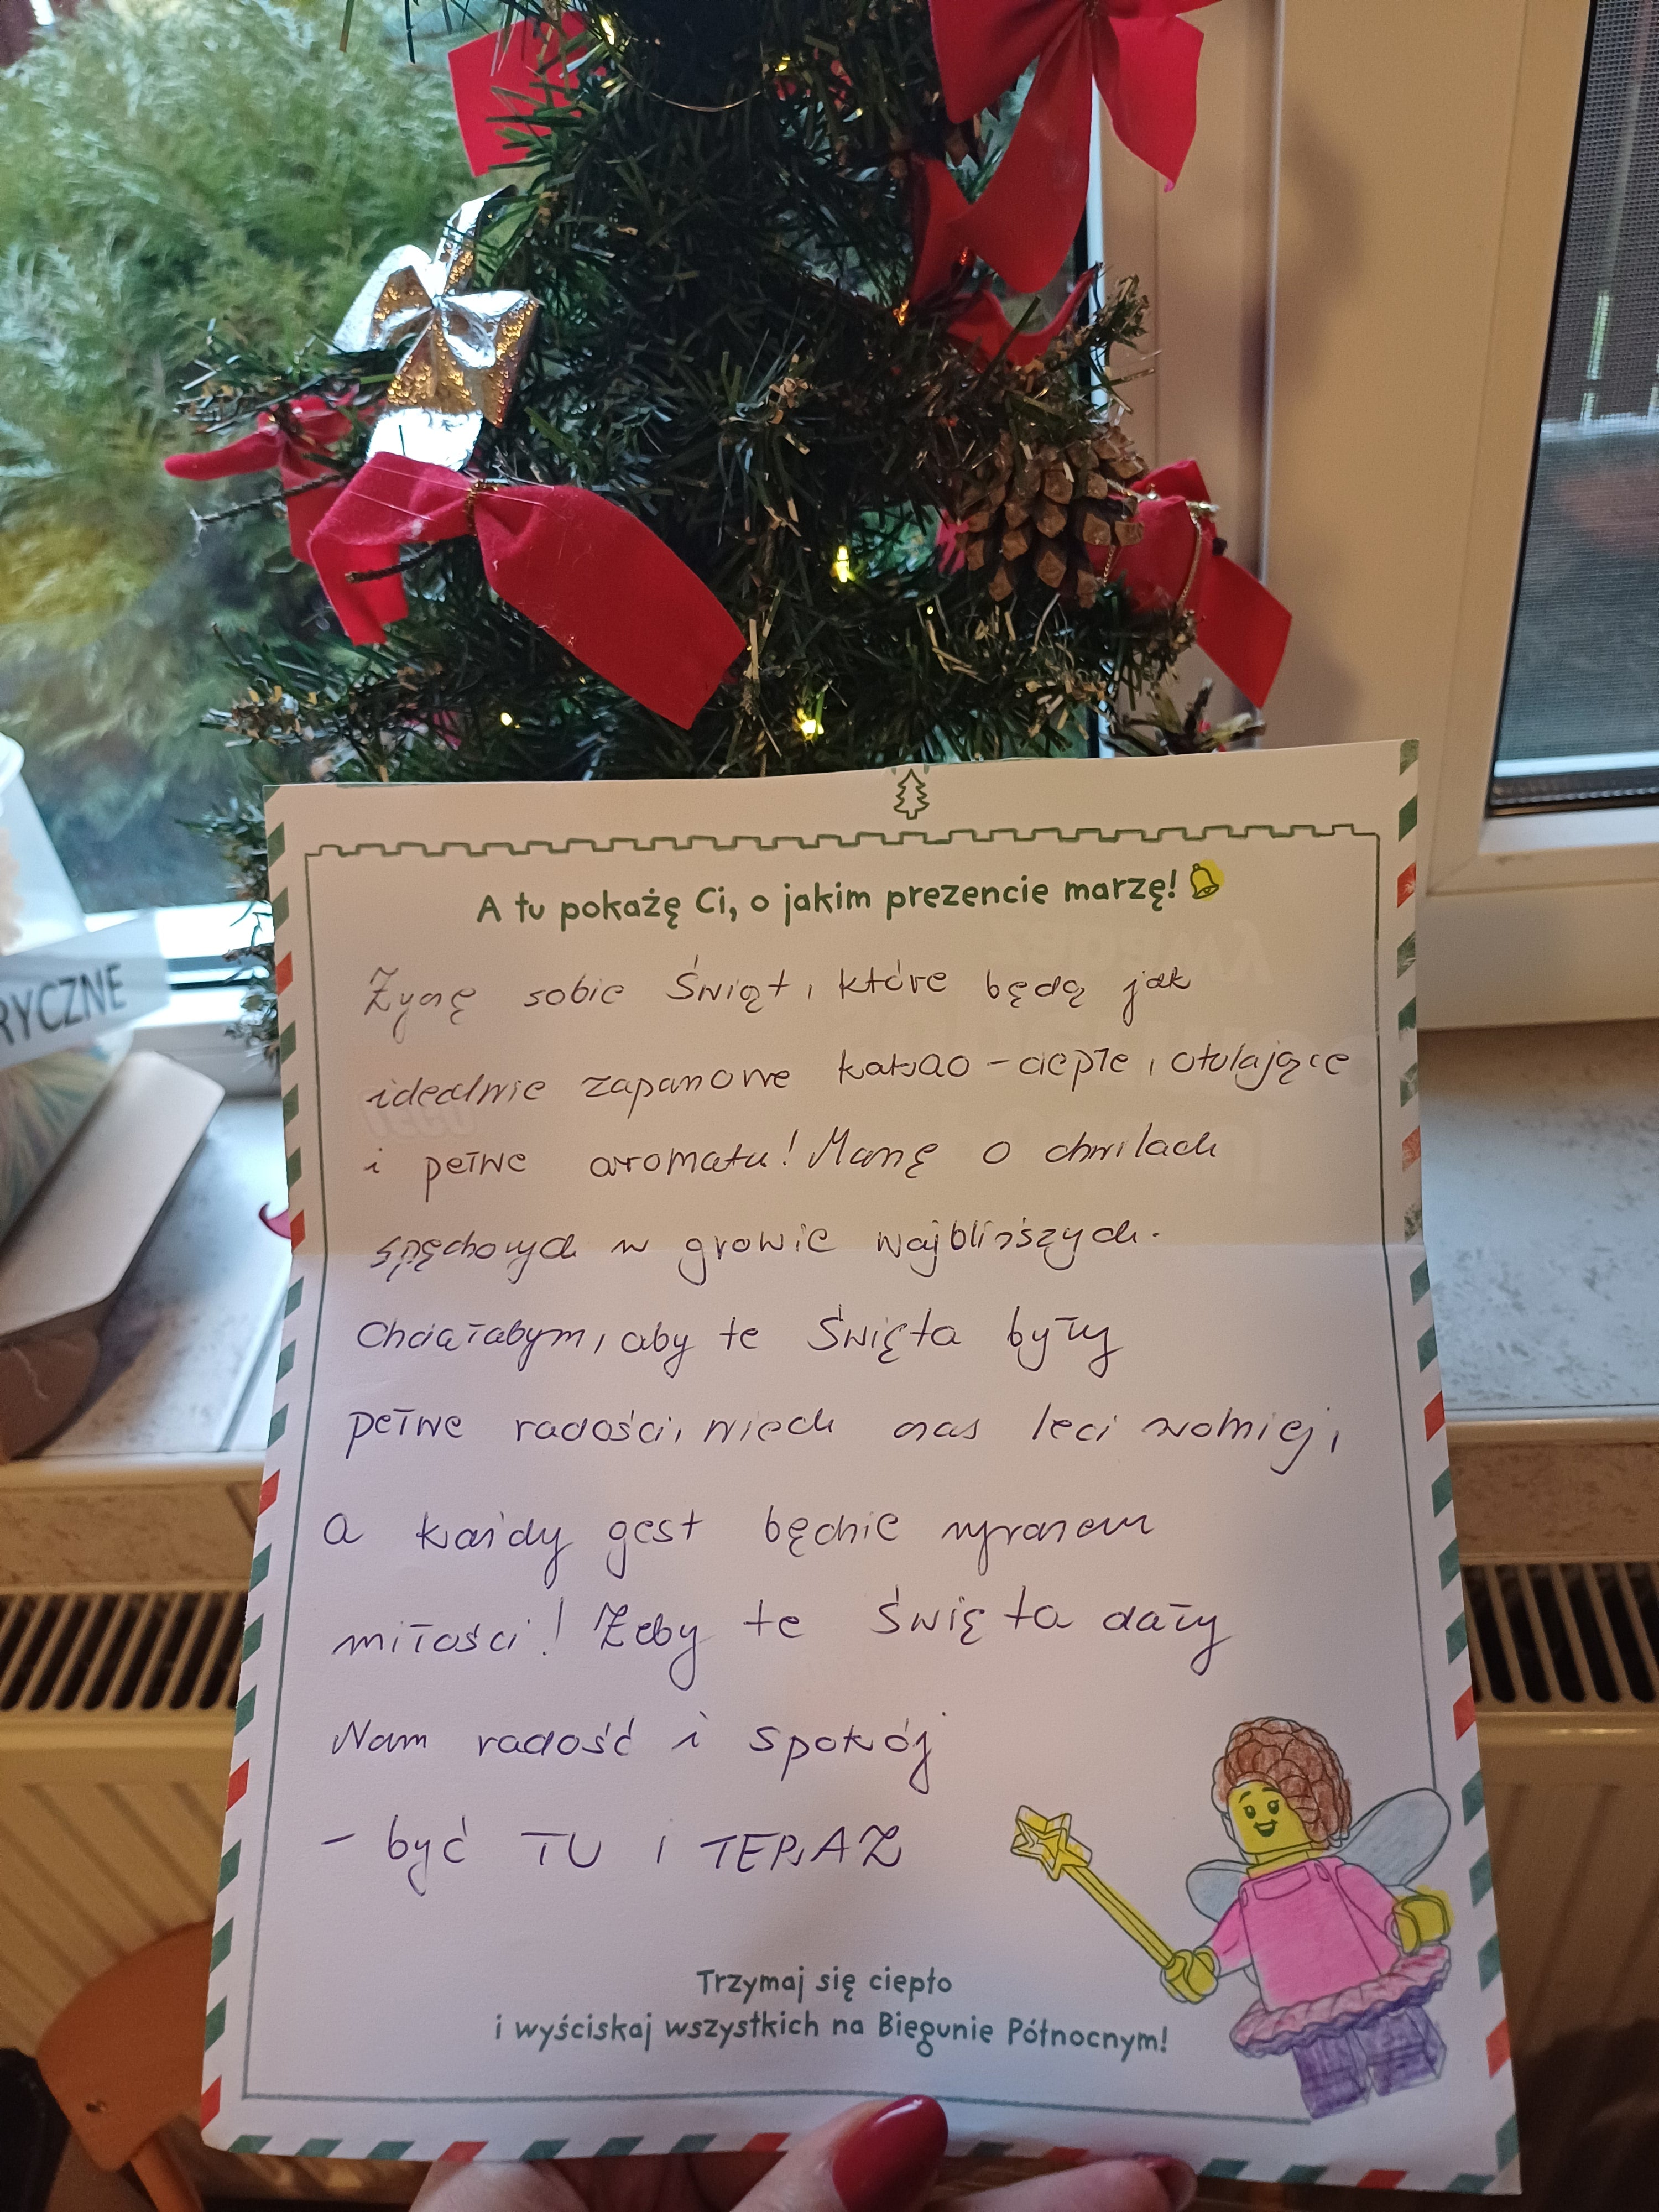 RYCZNE
A tu pokażę Ci, o jakim prezencie marzę!
Życzę sobie Świąt, które będą jak
idealnie zaparzone kakao - ciepłe, otulające
i pełne aromatu! Marzę o chwilach
spędzonych w gronie najbliższych.
Chciałabym, aby te Święta były
pełne radości, niech czas leci wolniej,
a każdy gest będzie wyrazem
miłości! Żeby te Święta dały
Nam radość i spokój
- być TU I TERAZ
Trzymaj się ciepło
i wyściskaj wszystkich na Biegunie Północnym!